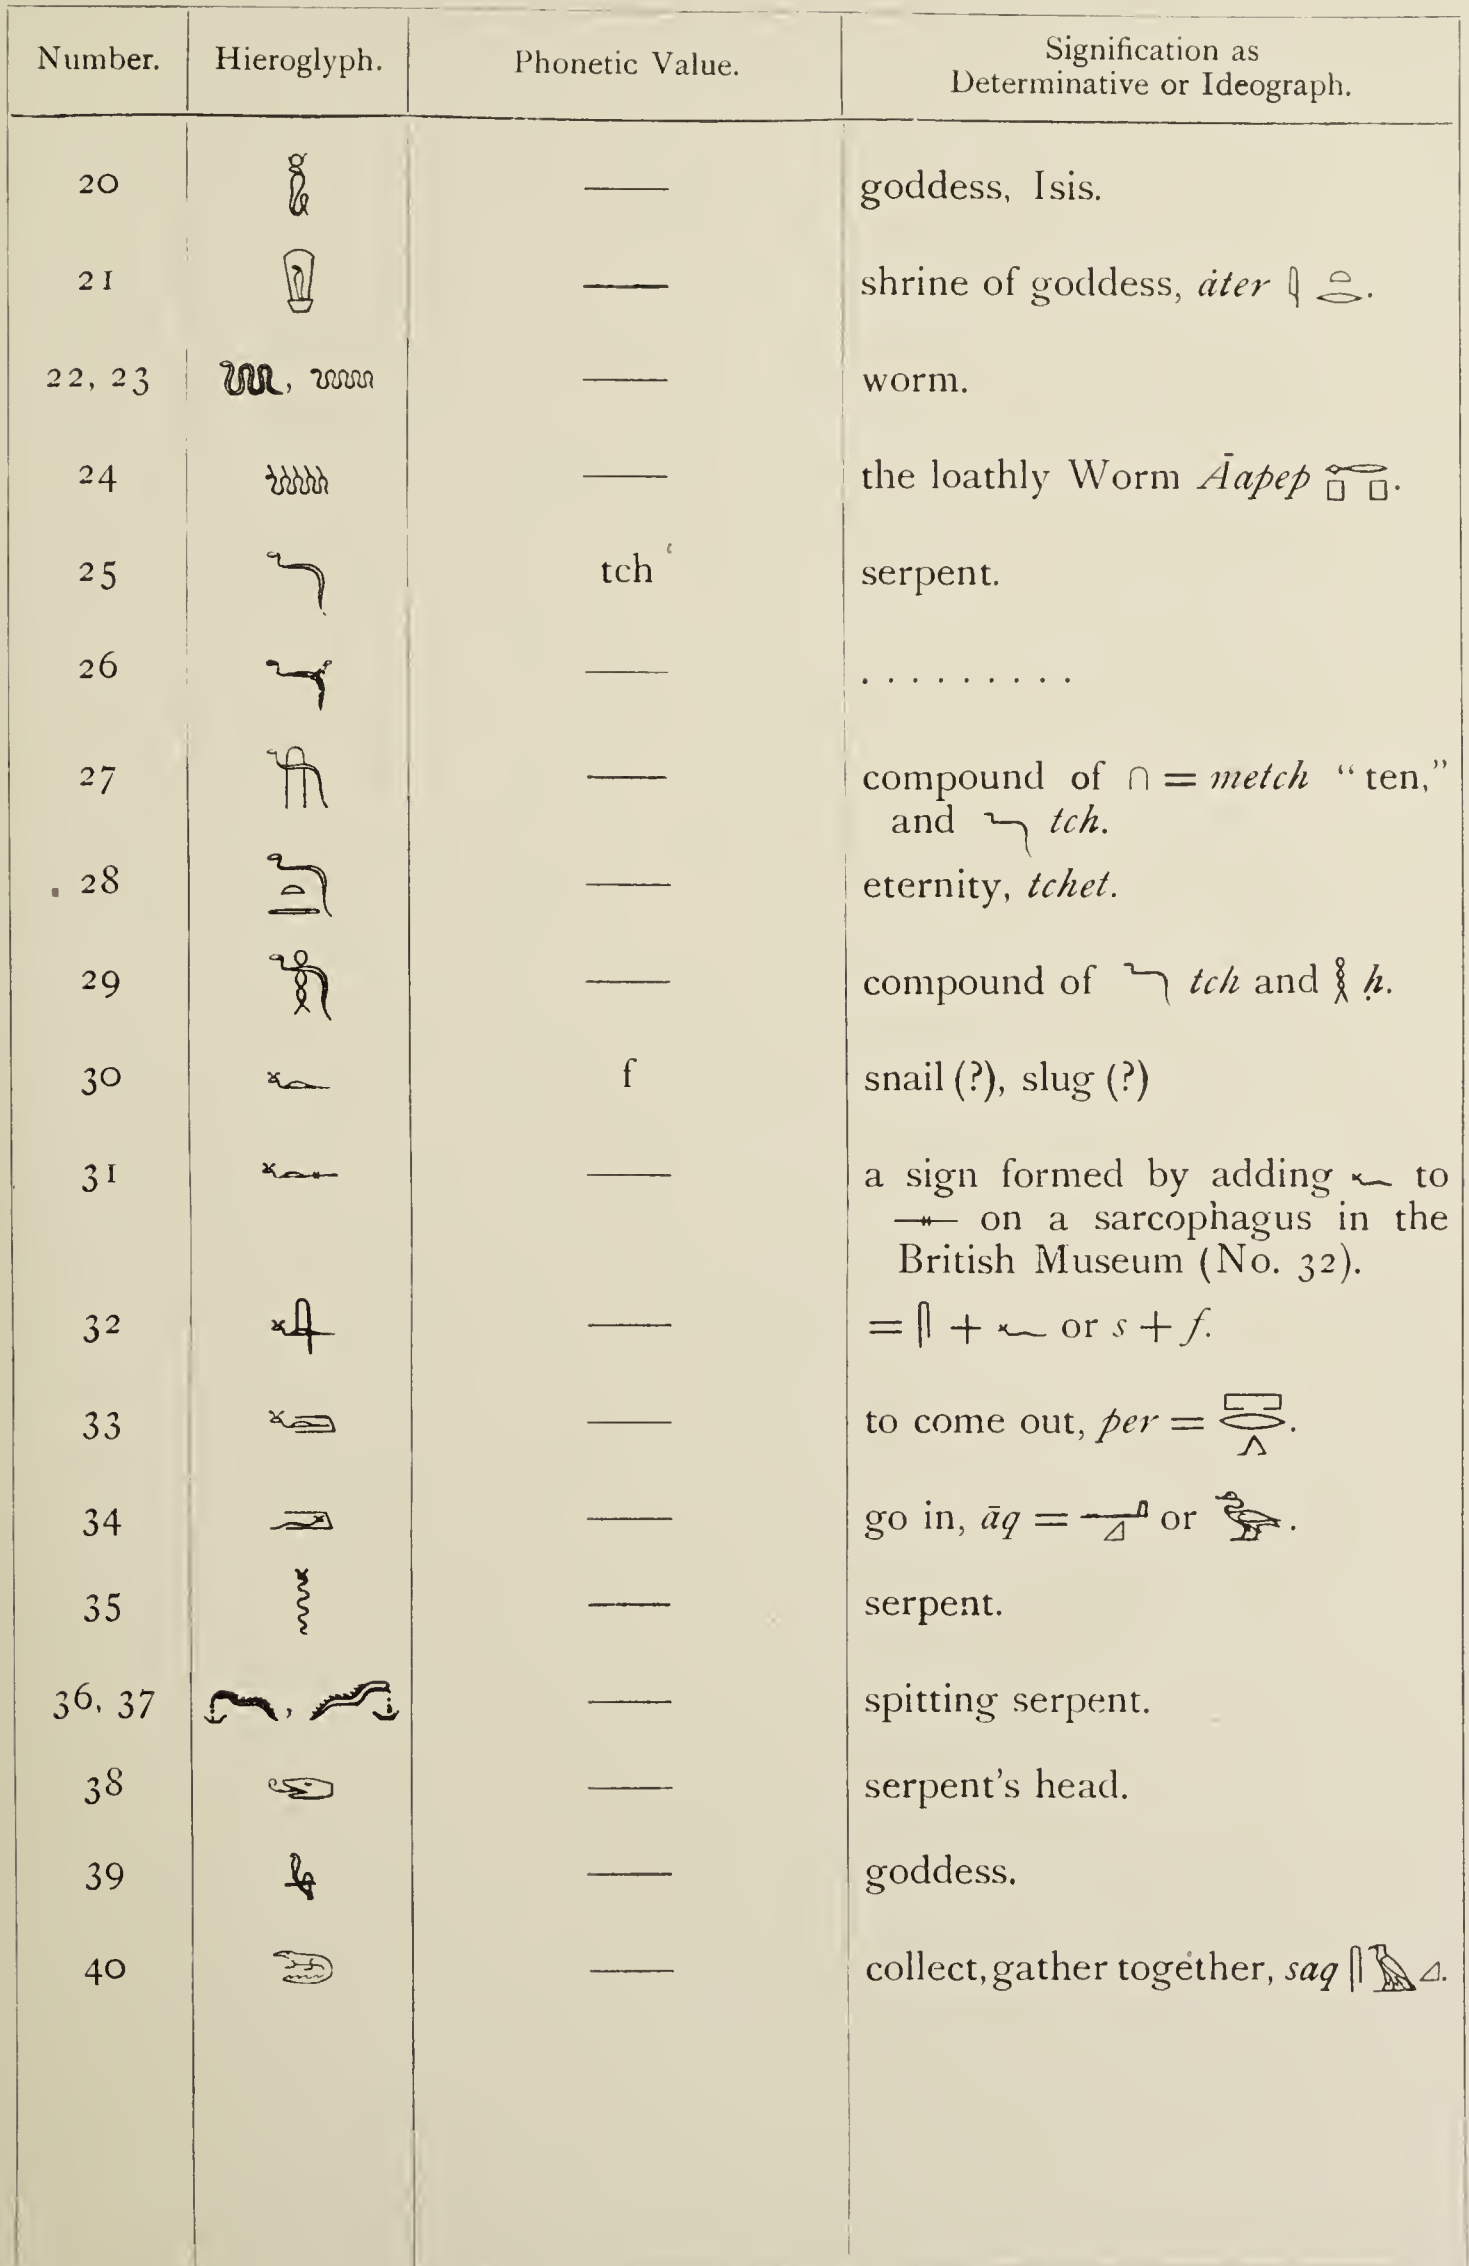 Number. Hieroglyph. Phonetic Value. Signification as
Determinative or Ideograph.
20 𓆘 —— goddess, Isis.
21 𓆙 —— shrine of goddess, ȧter 𓇋 𓏏𓂋.
22, 23 —— worm.
24 —— the loathly Worm Āapep 𓉻𓊪 𓊪.
25 𓆓 tch serpent.
26 —— . . . . . . . . .
27 —— compound of 𓎆 = metch “ten,”
and 𓆓 tch.
28 —— eternity, tchet.
29 —— compound of 𓆓 tch and 𓎛 ḥ.
30 𓆑 f snail (?), slug (?)
31 —— a sign formed by adding 𓆑 to
𓊃 on a sarcophagus in the
British Museum (No. 32).
32 —— = 𓋴 + 𓆑 or s + f.
33 𓆐 —— to come out, per = 𓉐𓂋𓂻.
34 𓆏 —— go in, āq = 𓂝𓈎 or 𓅧.
35 —— serpent.
36, 37 —— spitting serpent.
38 —— serpent’s head.
39 —— goddess.
40 —— collect, gather together, saq 𓋴𓅭𓈎.